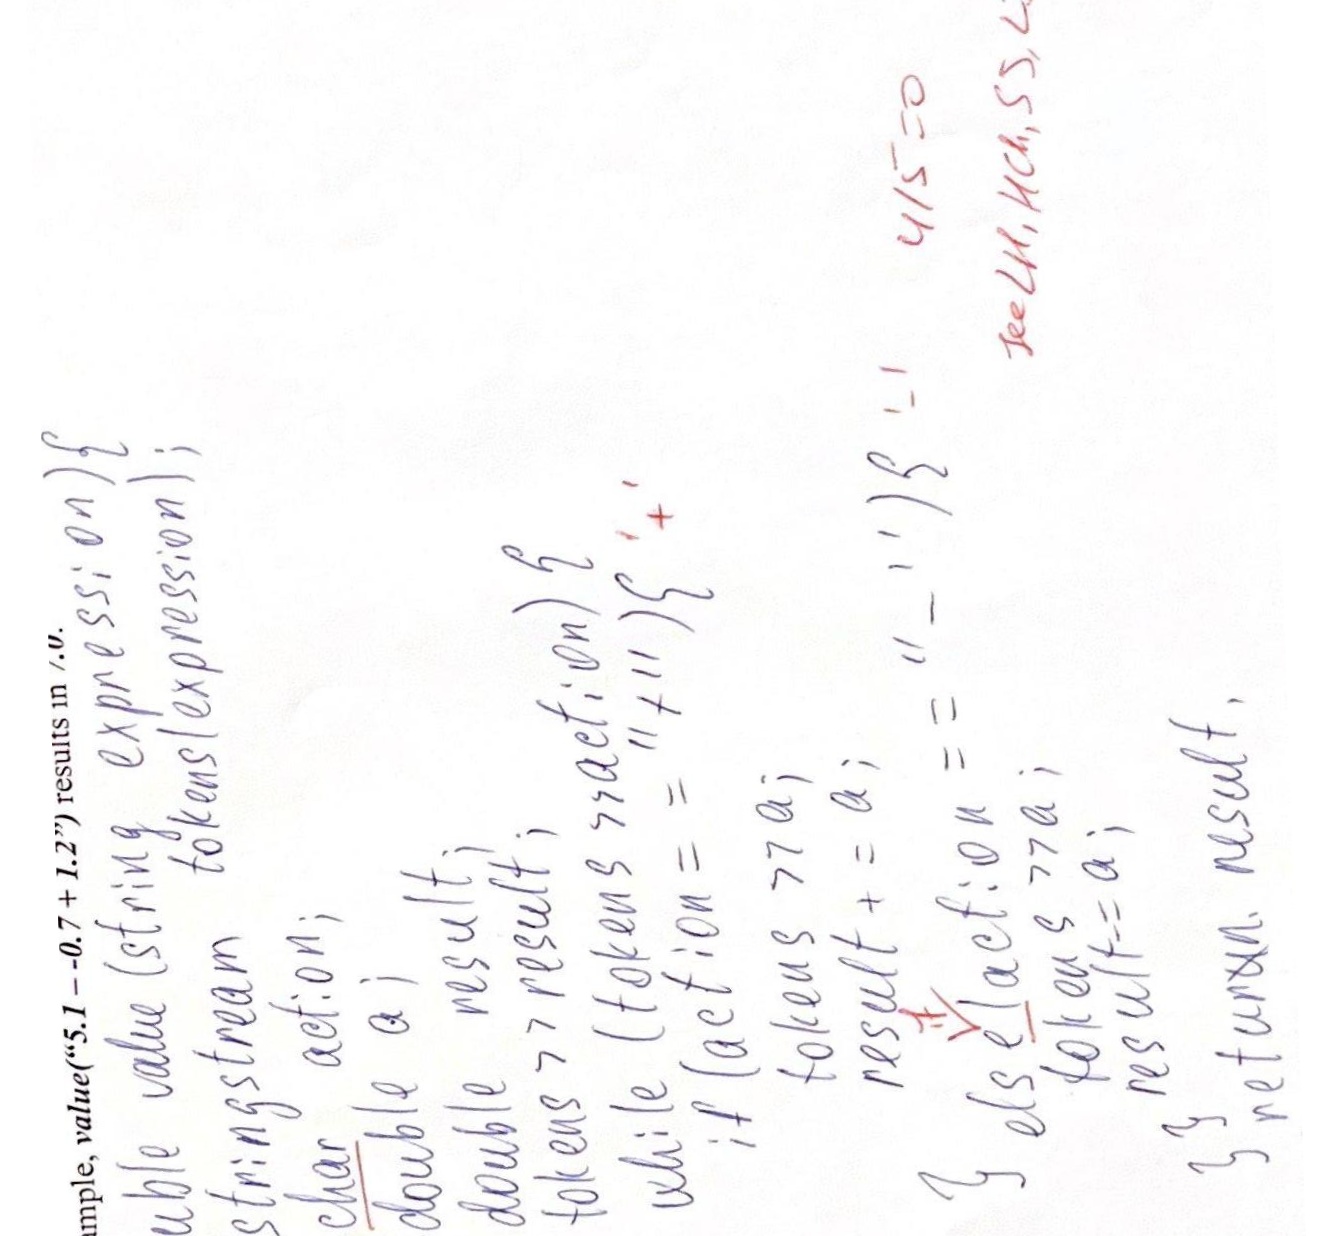 ample, value("5.1 – -0.7 + 1.2") results in 7.0.
uble value (string expression){
stringstream tokens(expression);
char action;
double a;
double result;
tokens >> result;
while (tokens >>action){
if (action == "+"){ '+'
tokens >> a;
result += a;
} else(action == "-"){ '-' 4/5=0
if
tokens >>a;
see LH, HCh, SS,
result-=a;
}
} return result.